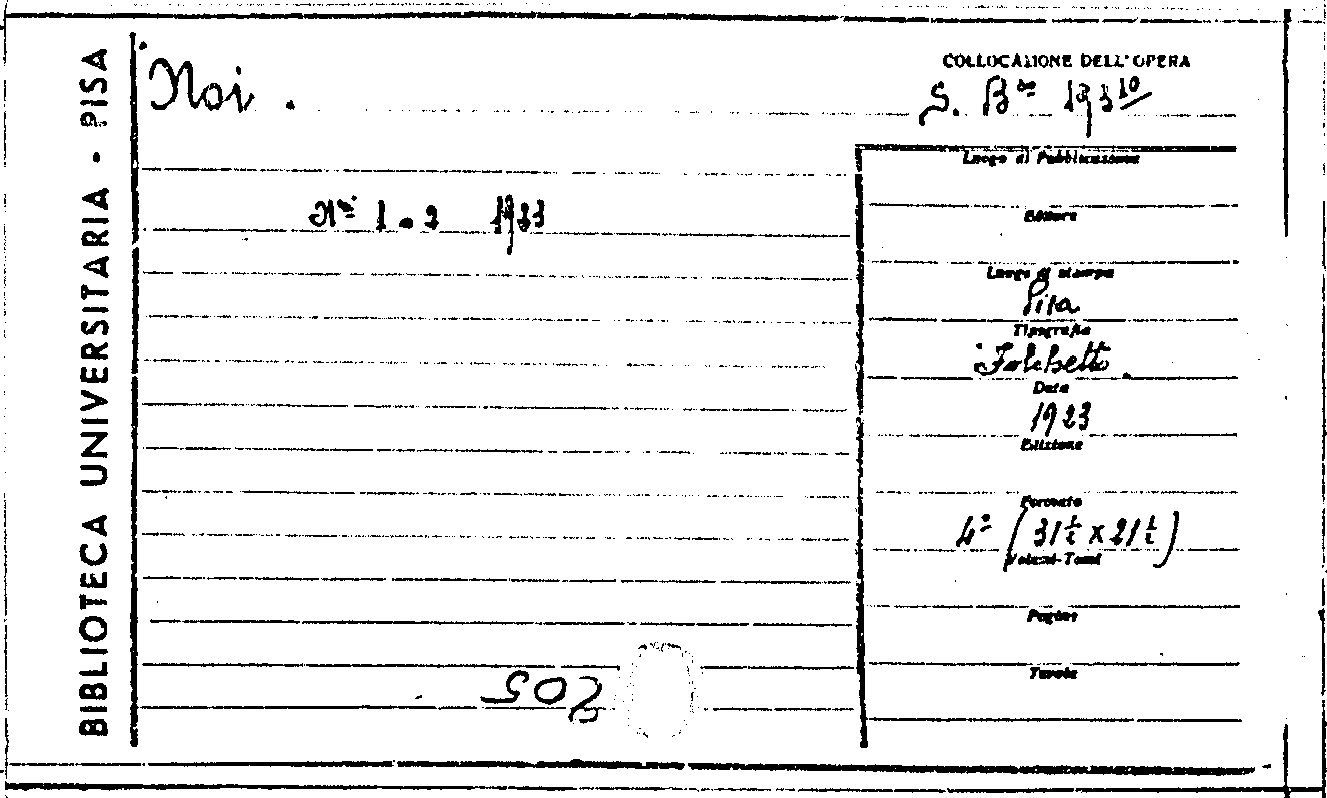 BIBLIOTECA UNIVERSITARIA - PISA
Noi.
COLLOCAZIONE DELL'OPERA
S. B
Luogo di Pubblicazione
Nⁱ 1 - 2 1923
Editore
Luogo di stampa
Pisa
Tipografia
Folchetto.
Data
1923
Edizione
Formato
4º (31½ x 21½)
Volumi-Tomi
Pagine
Tavole